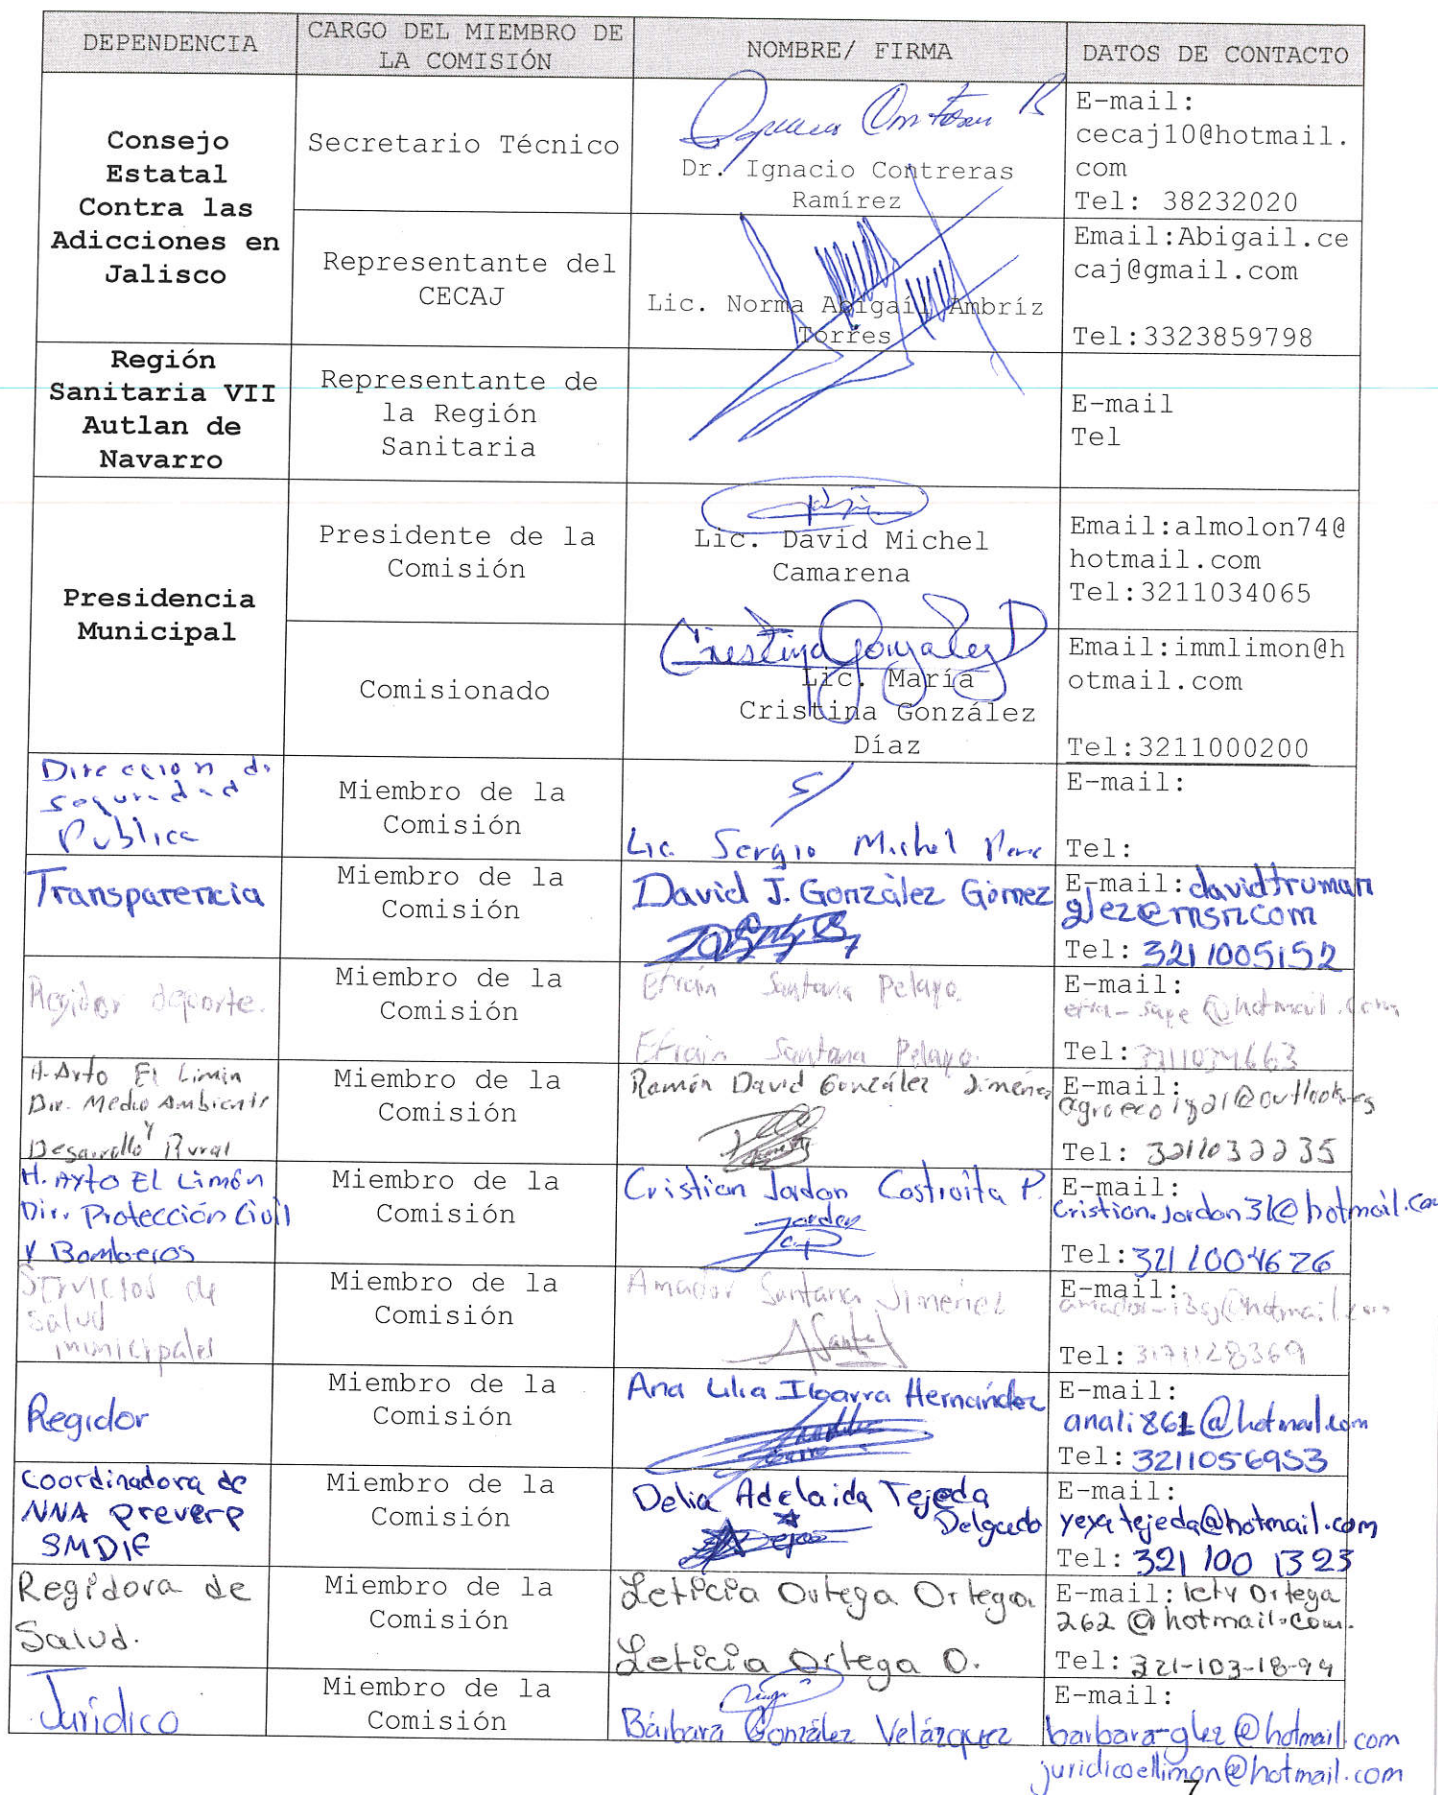 DEPENDENCIA
CARGO DEL MIEMBRO DE
LA COMISIÓN
NOMBRE/ FIRMA
DATOS DE CONTACTO
Consejo
Estatal
Contra las
Adicciones en
Jalisco
Secretario Técnico
Dr. Ignacio Contreras
Ramírez
E-mail:
cecaj10@hotmail.
com
Tel: 38232020
Representante del
CECAJ
Lic. Norma Abigaíl Ambríz
Torres
Email:Abigail.ce
caj@gmail.com
Tel:3323859798
Región
Sanitaria VII
Autlan de
Navarro
Representante de
la Región
Sanitaria
E-mail
Tel
Presidencia
Municipal
Presidente de la
Comisión
Lic. David Michel
Camarena
Email:almolon74@
hotmail.com
Tel:3211034065
Comisionado
Cristina González D
Lic. María
Cristina González
Díaz
Email:immlimon@h
otmail.com
Tel:3211000200
Direccion de
seguridad
Publica
Miembro de la
Comisión
Lic. Sergio Michel
E-mail:
Tel:
Transparencia
Miembro de la
Comisión
David J. González Gómez
E-mail: davidtruman
glez@msn.com
Tel: 3211005152
Regidor deporte.
Miembro de la
Comisión
Efraín Santana Pelayo.
Efraín Santana Pelayo.
E-mail:
efra-sape@hotmail.com
Tel:
H. Ayto El Limón
Dir. Medio Ambiente
y
Desarrollo Rural
Miembro de la
Comisión
Ramón David González Jiménez
E-mail:
Tel: 3211032235
H. Ayto El Limón
Dir. Protección Civil
y Bomberos
Miembro de la
Comisión
Cristian Jordan Castroita P.
Jordan
E-mail:
Cristian.Jordan31@hotmail.com
Tel: 3211004626
Servicios de
salud
municipales
Miembro de la
Comisión
Amador Santana Jiménez
ASanta
E-mail:
Tel: 3171128369
Regidor
Miembro de la
Comisión
Ana Lilia Ibarra Hernández
E-mail:
anali861@hotmail.com
Tel: 3211056953
Coordinadora de
NNA Preverp
SMDIF
Miembro de la
Comisión
Delia Adelaida Tejeda
Delgado
E-mail:
yeyatejeda@hotmail.com
Tel: 321 100 1323
Regidora de
Salud.
Miembro de la
Comisión
Leticia Ortega Ortega
Leticia Ortega O.
E-mail: lety Ortega
262@hotmail.com.
Tel: 321-103-18-94
Jurídico
Miembro de la
Comisión
Bárbara González Velázquez
E-mail:
barbara-glez@hotmail.com
juridicoellimon@hotmail.com
7